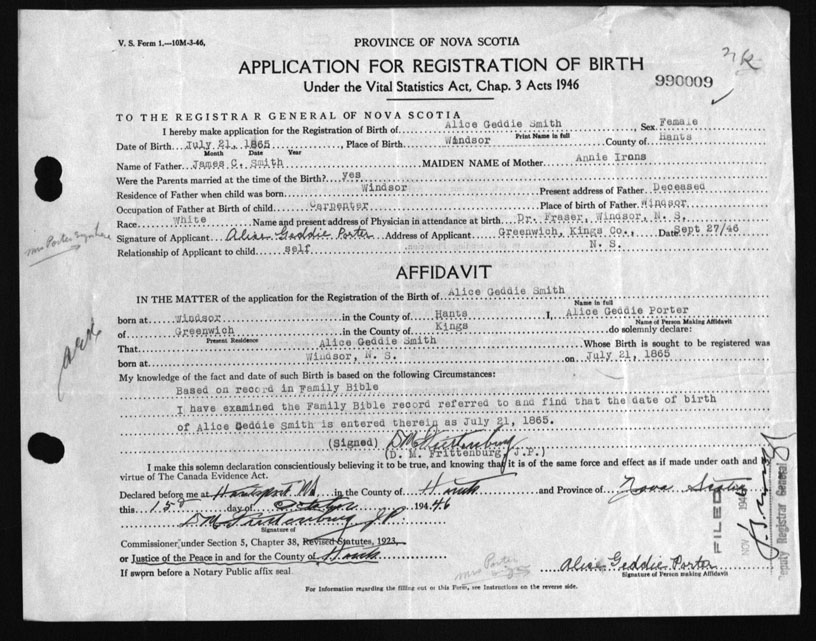 V. S. Form 1.—10M-3-46,
PROVINCE OF NOVA SCOTIA
APPLICATION FOR REGISTRATION OF BIRTH
Under the Vital Statistics Act, Chap. 3 Acts 1946
990009
TO THE REGISTRAR GENERAL OF NOVA SCOTIA
I hereby make application for the Registration of Birth of Alice Geddie Smith Sex Female
Print Name in full
Date of Birth July 21, 1865 Place of Birth Windsor County of Hants
Month Date Year
Name of Father James C. Smith MAIDEN NAME of Mother Annie Irons
Were the Parents married at the time of the Birth? yes
Residence of Father when child was born Windsor Present address of Father Deceased
Occupation of Father at Birth of child Carpenter Place of birth of Father Windsor
Race White Name and present address of Physician in attendance at birth Dr. Fraser, Windsor, N. S.
Signature of Applicant Alice Geddie Porter Address of Applicant Greenwich, Kings Co., Date Sept 27/46
Relationship of Applicant to child self N. S.
AFFIDAVIT
IN THE MATTER of the application for the Registration of the Birth of Alice Geddie Smith
Name in full
born at Windsor in the County of Hants I, Alice Geddie Porter
Name of Person Making Affidavit
of Greenwich in the County of Kings do solemnly declare:
Present Residence
That Alice Geddie Smith Whose Birth is sought to be registered was
born at Windsor, N. S. on July 21, 1865
My knowledge of the fact and date of such Birth is based on the following Circumstances:
Based on record in Family Bible
I have examined the Family Bible record referred to and find that the date of birth
of Alice Geddie Smith is entered therein as July 21, 1865.
(Signed)
(D. M. Frittenburg, J.P.)
I make this solemn declaration conscientiously believing it to be true, and knowing that it is of the same force and effect as if made under oath and by
virtue of The Canada Evidence Act.
Declared before me at Hantsport in the County of Hants and Province of Nova Scotia
this day of October 194 46
Signature of
Commissioner under Section 5, Chapter 38, Revised Statutes, 1923
or Justice of the Peace in and for the County of Hants
If sworn before a Notary Public affix seal
Alice Geddie Porter
Signature of Person Making Affidavit
For Information regarding the filling out of this Form, see Instructions on the reverse side.
FILED
NOV 1946
Deputy Registrar General